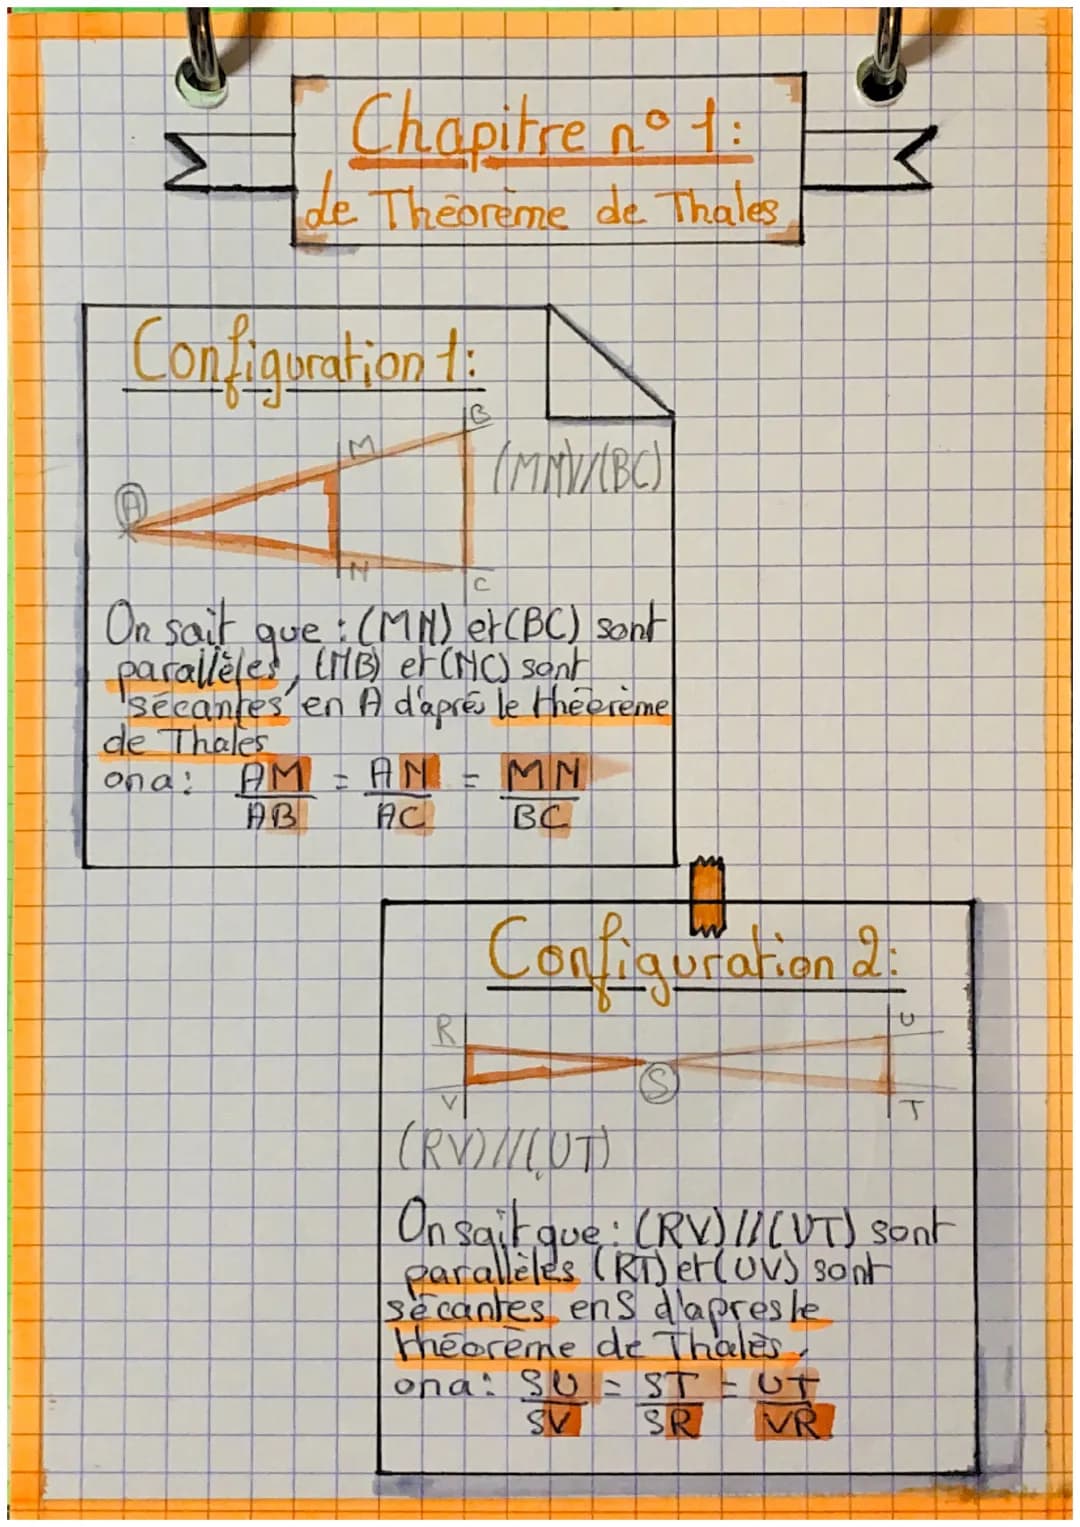 Chapitre n° 1:
de Théorème de Thales
Configuration 1:
B
M
(MN)//(BC)
A
N
C
On sait que : (MN) et (BC) sont
parallèles, (MB) et (NC) sont
sécantes en A d'aprés le théorème
de Thales
ona: AM = AN = MN
AB AC BC
Configuration 2:
R
U
S
V
T
(RV)//(UT)
On sait que : (RV)//(UT) sont
parallèles (RT) et (UV) sont
sécantes en S d'apres le
théorème de Thalès,
ona: SU = ST = UT
SV SR VR